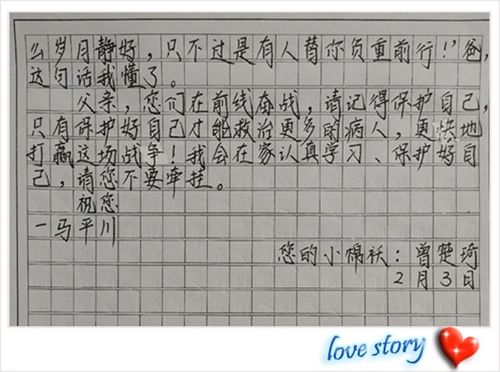 么岁月静好，只不过是有人替你负重前行！”爸，
这句话我懂了。
父亲，您们在前线奋战，请记得保护自己，
只有保护好自己才能救治更多的病人，更快地
打赢这场战争！我会在家认真学习、保护好自
己，请您不要牵挂。
祝您
一马平川
您的小棉袄：曾楚琦
2月3日
love story